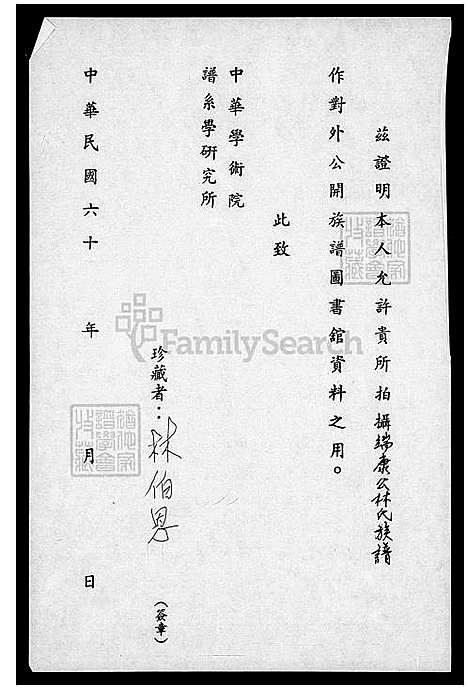 茲證明本人允許貴所拍攝端康公林氏族譜
作對外公開族譜圖書舘資料之用。
此致
中華學術院
譜系學研究所
珍藏者：林伯恩
（簽章）
中華民國六十 年 月 日
FamilySearch